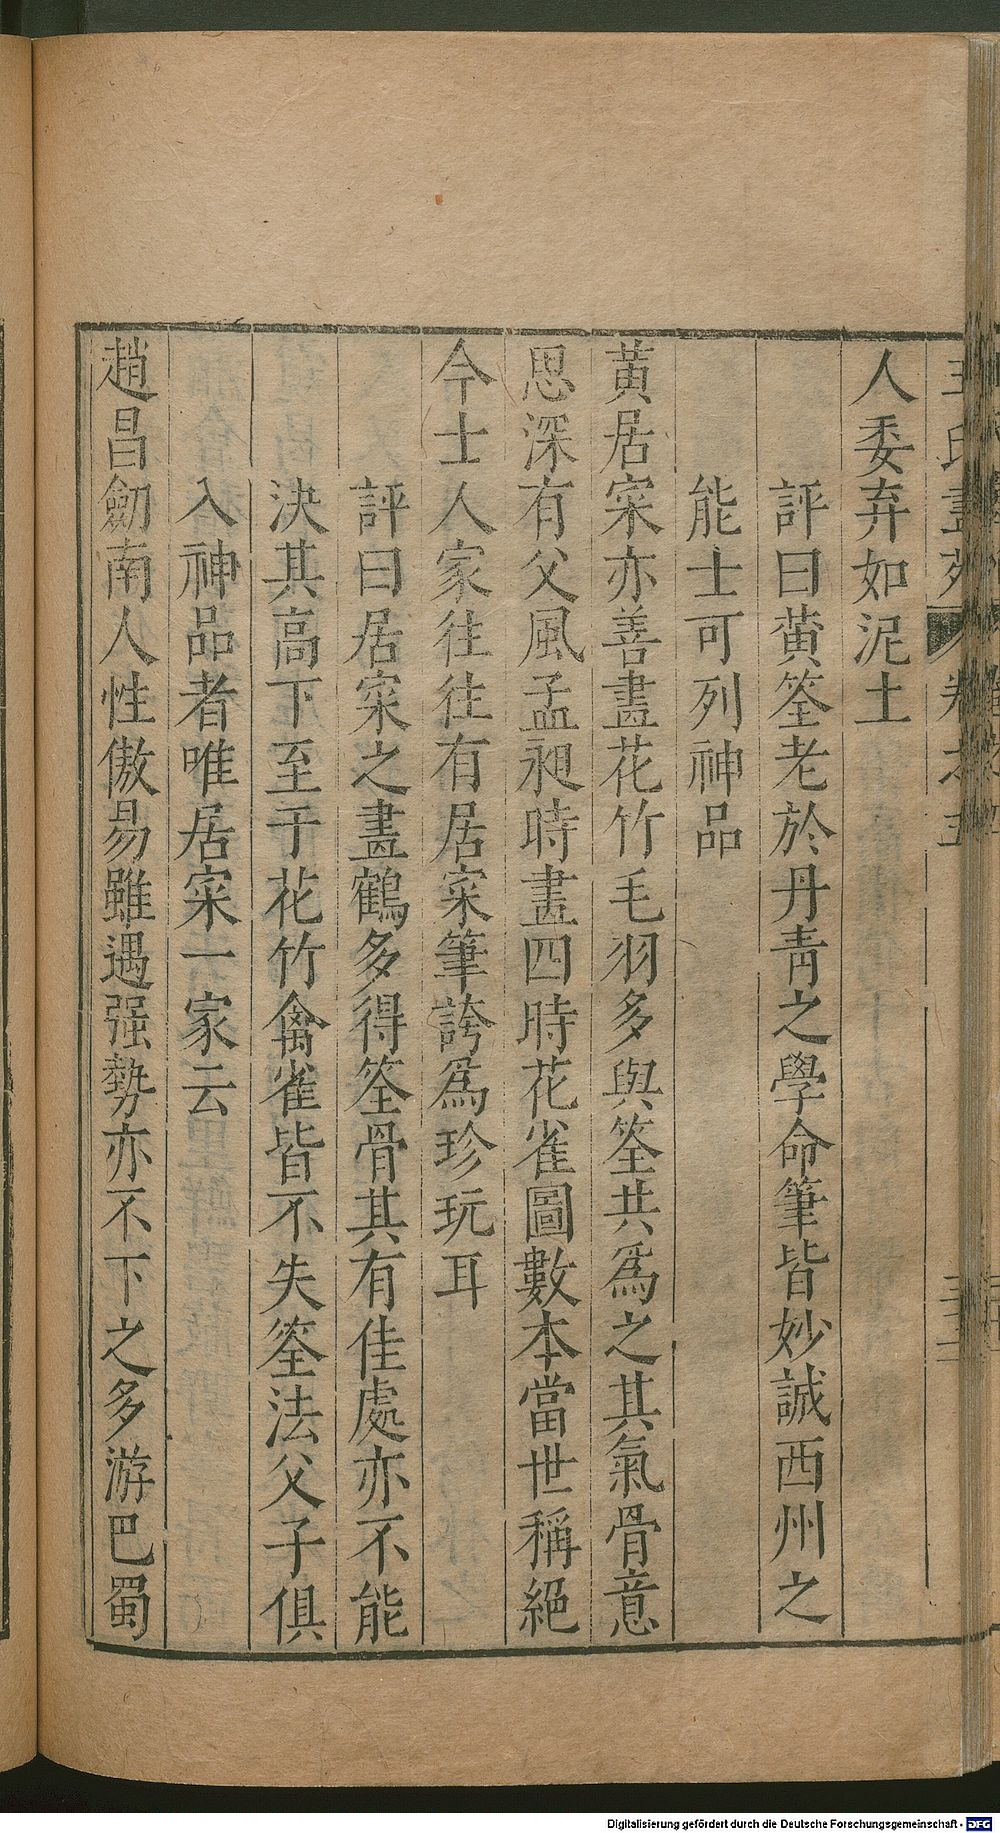 王氏畫苑 卷之五 三十二
人委弃如泥土
評曰黃筌老於丹靑之學命筆皆妙誠西州之
能士可列神品
黃居寀亦善畫花竹毛羽多與筌共爲之其氣骨意
思深有父風孟昶時畫四時花雀圖數本當世稱絕
今士人家往往有居寀筆誇爲珍玩耳
評曰居寀之畫鶴多得筌骨其有佳處亦不能
決其高下至于花竹禽雀皆不失筌法父子俱
入神品者唯居寀一家云
趙昌劒南人性傲易雖遇强勢亦不下之多游巴蜀
Digitalisierung gefördert durch die Deutsche Forschungsgemeinschaft - DFG